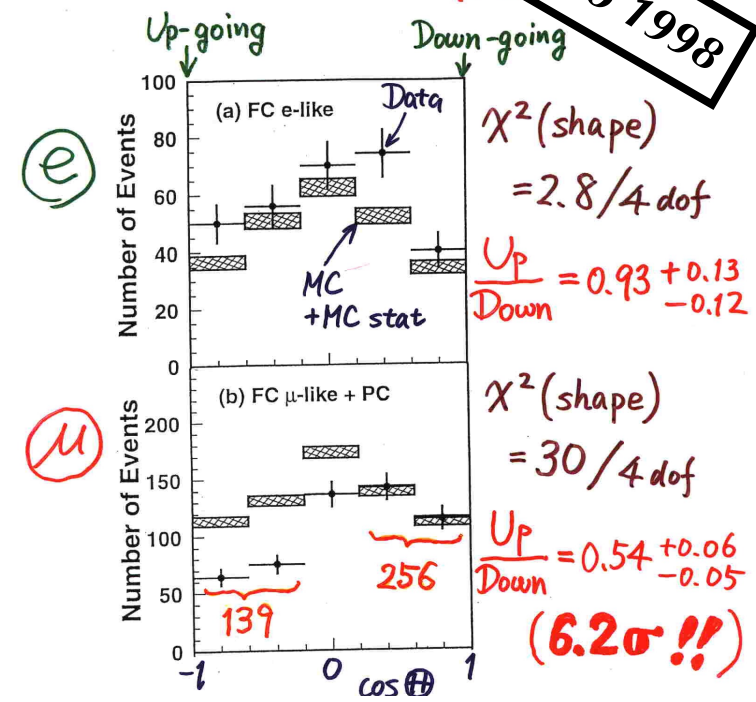 1998
Up-going
Down-going
e
Number of Events
100
80
60
40
20
0
(a) FC e-like
Data
MC
+MC stat
χ² (shape)
= 2.8/4 dof
Up/Down = 0.93 +0.13 -0.12
μ
Number of Events
200
150
100
50
0
(b) FC μ-like + PC
139
256
-1
0
1
cos Θ
χ² (shape)
= 30/4 dof
Up/Down = 0.54 +0.06 -0.05
(6.2σ !!)